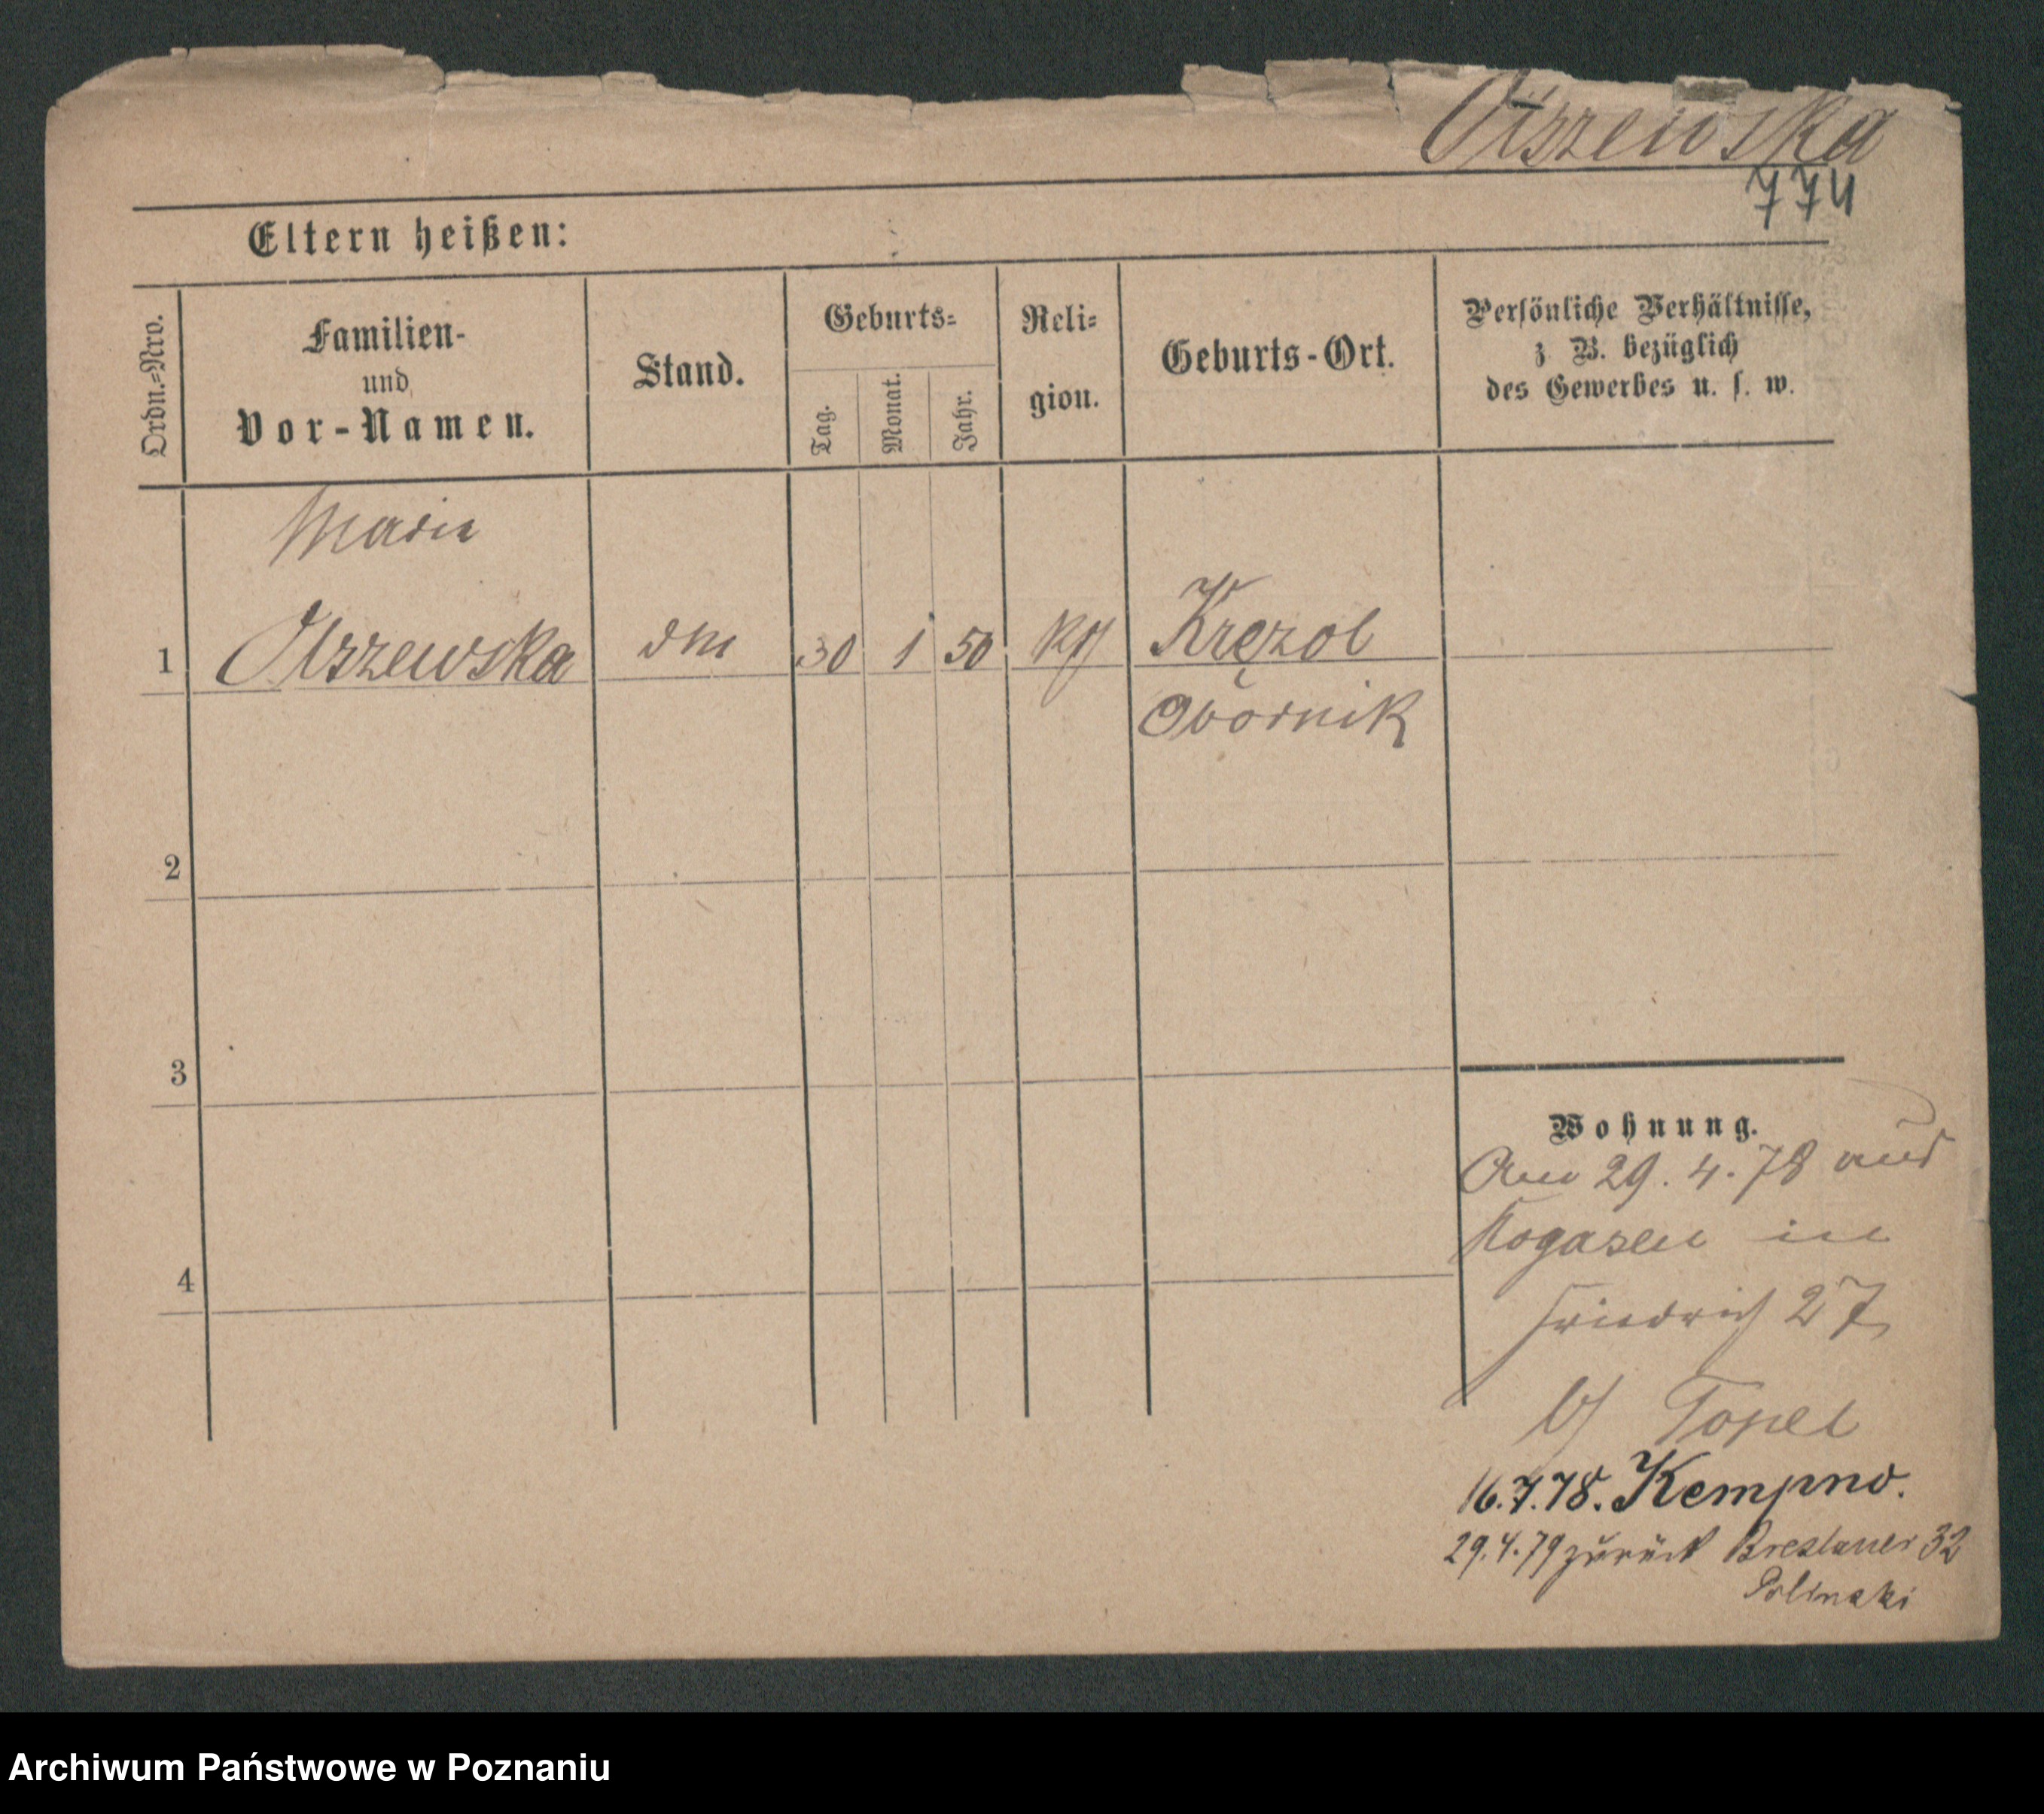 Olszewska
774
Eltern heißen:
Ordn.=Nro.
Familien-
und
Vor-Namen.
Stand.
Geburts=
Tag.
Monat.
Jahr.
Reli=
gion.
Geburts-Ort.
Persönliche Verhältnisse,
z. B. bezüglich
des Gewerbes u. s. w.
Marie
1 Olszewska 30 1 50 Kręzol
Obornik
2
3
4
Wohnung.
Am 29. 4. 78 aus
Rogasen in
Friedrich 27
b/ Topel
16.7.78. Kempno.
29.4.79 zurück Breslauer 32
Polinski
Archiwum Państwowe w Poznaniu